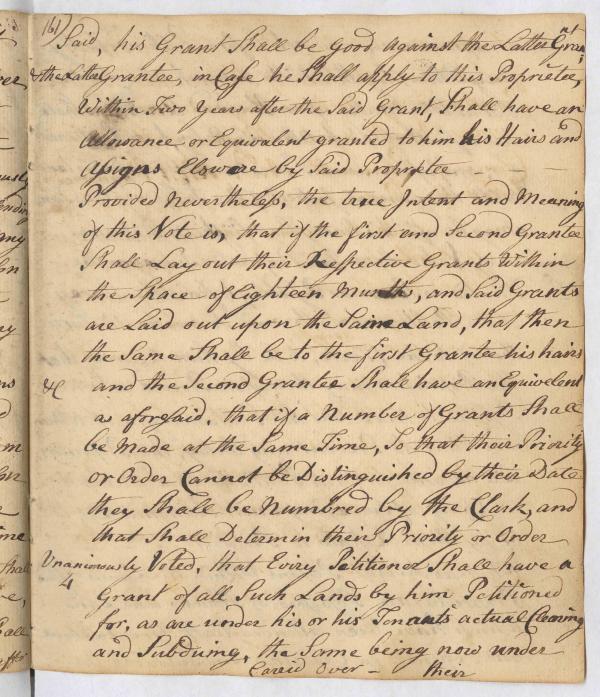 161)
Said, his Grant Shall be good against the Latter Grant
& the Latter Grantee, in Case he Shall apply to this Proprietee,
Within Two Years after the Said Grant, Shall have an
Allowance or Equivalent granted to him his Hairs and
Asigns Elsware by Said Proprietee - - -
Provided Nevertheless, the true Intent and Meaning
of this Vote is, that if the first and Second Grantee
Shall Lay out their Respective Grants Within
the Space of Eighteen Munths, and Said Grants
are Laid out upon the Same Land, that then
the Same Shall be to the first Grantee his hairs
&c and the Second Grantee Shall have an Equivelent
as aforesaid. that if a Number of Grants Shall
be Made at the Same Time, So that their Priority
or Order Cannot be Distinguished by their Date
they Shall be Numbred by the Clark, and
that Shall Determin their Priority or Order
Unanimously Voted, that Eviry Petitioner Shall have a
4 Grant of all Such Lands by him Petitioned
for, as are under his or his Tenants actual Clearing
and Subduing, the Same being now under
Caried Over - their